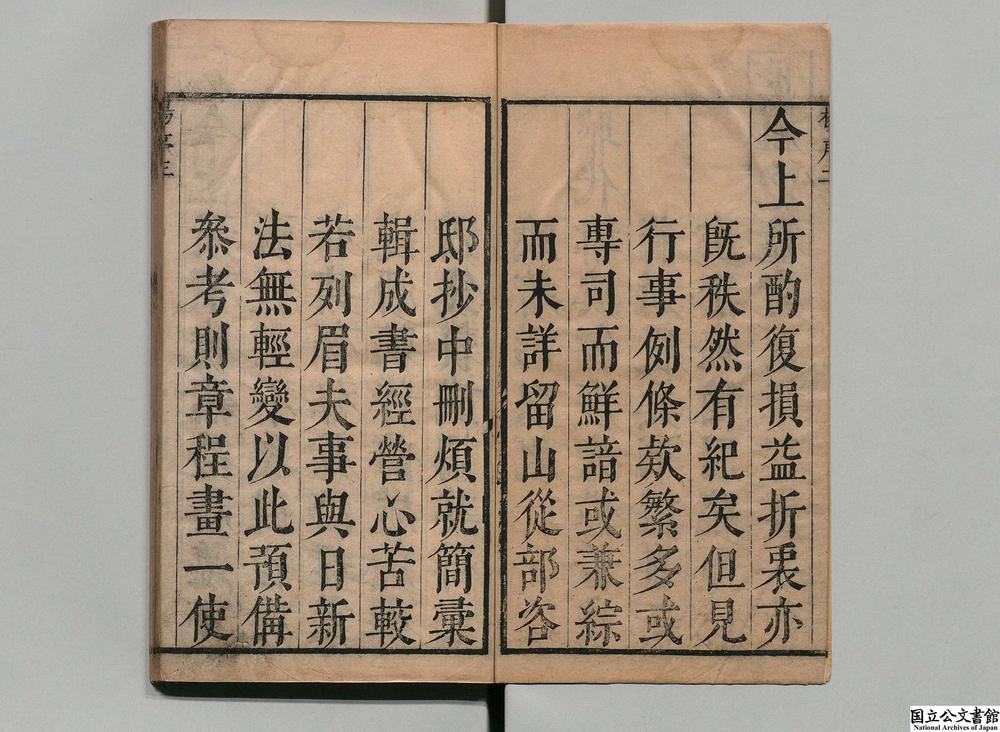 今上所酌復損益折衷亦
旣秩然有紀矣但見
行事例條欵繁多或
專司而鮮諳或兼綜
而未詳留山從部咨
邸抄中刪煩就簡彙
輯成書經營心苦較
若列眉夫事與日新
法無輕變以此預備
叅考則章程畫一使
国立公文書館
National Archives of Japan